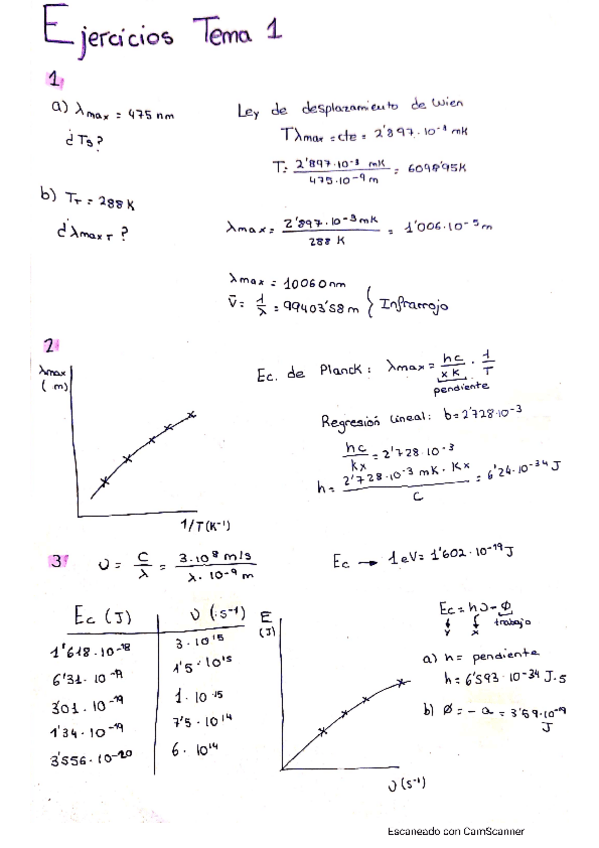 Ejercicios Tema 1
1
a) λmax = 475 nm
¿Ts?
Ley de desplazamiento de Wien
Tλmax = cte = 2'897·10⁻³ mK
T = 2'897·10⁻³ mK / 475·10⁻⁹ m = 6098'95K
b) TT = 288 K
¿λmax T?
λmax = 2'897·10⁻³ mK / 288 K = 1'006·10⁻⁵ m
λmax = 10060 nm
ν̄ = 1/λ = 99403'58 m } Infrarrojo
2
λmax (m)
1/T (K⁻¹)
Ec. de Planck: λmax = hc / xK · 1/T
pendiente
Regresión lineal: b = 2'728·10⁻³
hc / Kx = 2'728·10⁻³
h = 2'728·10⁻³ mK · Kx / C = 6'24·10⁻³⁴ J
3
υ = C/λ = 3·10⁸ m/s / λ·10⁻⁹ m
Ec → 1 eV = 1'602·10⁻¹⁹ J
Ec (J) υ (·s⁻¹)
1'618·10⁻¹⁸ 3·10¹⁵
6'31·10⁻¹⁹ 1'5·10¹⁵
301·10⁻¹⁹ 1·10¹⁵
1'34·10⁻¹⁹ 7'5·10¹⁴
3'556·10⁻²⁰ 6·10¹⁴
E (J)
υ (s⁻¹)
Ec = hυ - Ø
y x trabajo
a) h = pendiente
h = 6'593·10⁻³⁴ J·s
b) Ø = -a = 3'59·10⁻¹⁹ J
Escaneado con CamScanner